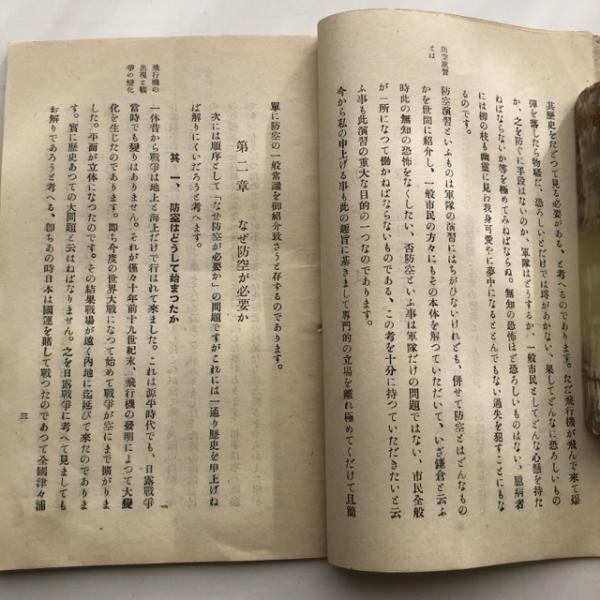 防空演習
とは
其歴史をたどつて見る必要がある、と考へるのです。たゞ飛行機が飛んで來て爆
彈を落したら物騷だ、恐ろしいとだけでは埒があかない、果してどんなに恐ろしいもの
か、之を防ぐに手段はないのか、軍隊はどうするか、一般市民としてどんな心懸を持た
ねばならないか等を極めてみねばならぬ。無知の恐怖ほど恐ろしいものはない、臆病者
には柳の枝も幽靈に見え我身可愛やに夢中になるととんでもない過失を犯すことにもな
るのです。
防空演習といふものは軍隊の演習にはちがひないけれども、併せて防空とはどんなもの
かを世間に紹介し、一般市民の方々にもその本体を解つていただいて、いざ鎌倉と云ふ
時此の無知の恐怖をなくしたい、否防空といふ事は軍隊だけの問題ではない、市民全般
が一所になつて働かねばならないものである、この考を十分に持つていただきたいと云
ふ事も此演習の重大な目的の一つなのであります。
今から私の申上げる事も此の趣旨に基きまして専門的の立場を離れ極めてくだけて且簡
單に防空の一般常識を御紹介致さうと存するのであります。
第二章 なぜ防空が必要か
次には順序として「なぜ防空が必要か」の問題ですがこれには一通り歴史を申上げね
ば解りにくいだらうと考へます。
其一、防空はどうして始まつたか
飛行機の
出現と戰
爭の變化
一体昔から戰爭は地上と海上だけで行はれて來ました。これは源平時代でも、日露戰爭
當時でも變りはありません。それが僅々十年前十九世紀末、飛行機の發明によつて大變
化を生じたのであります。即ち今度の世界大戰になつて始めて戰爭が空にまで擴がりま
した。平面が立体になつたのです。その結果戰場が遠く内地に迄延びて來たのでありま
す。實に歴史あつての大問題と云はねばなりません。之を日露戰爭に考へて見ましても
お解りであらうと考へる、卽ちあの時日本は國運を賭して戰つたのであつて全國津々浦
三